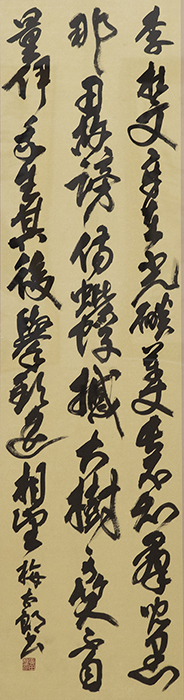 李杜文章在光燄萬丈長不知群兒愚
那用故謗傷蚍蜉撼大樹可笑不自
量伊我生其後舉頸遙相望 梅太郎書